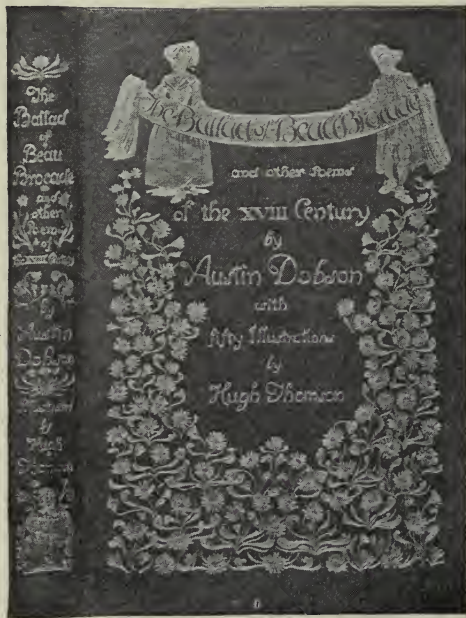 The
Ballad
of
Beau
Brocade
and
other
Poems
of
by
Austin
Dobson
by
Hugh
Thomson
The Ballad of Beau Brocade
and other Poems
of the XVIII Century
by
Austin Dobson
with
fifty Illustrations
by
Hugh Thomson